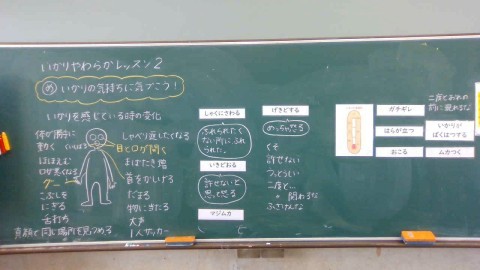 いかりやわらかレッスン2
め いかりの気持ちに気づこう!
いかりを感じている時の変化
体が勝手に
動く
ほほえむ
口が悪くなる
グー
こぶしを
にぎる
舌打ち
真顔で同じ場所を見つめる
しゃべり返したくなる
目と口が開く
まばたき増
首をかしげる
だまる
物に当たる
大声
1人サッカー
しゃくにさわる
ふれられたく
ない所にふれ
られた。
いきどおる
許せないと
思ってる
マジムカ
げきどする
めっちゃ怒る
くそ
許せない
うっとうしい
二度と…
関わるな
ふざけんな
ガチギレ
はらが立つ
おこる
二度とおれの
前に現れるな
いかりが
ばくはつする
ムカつく